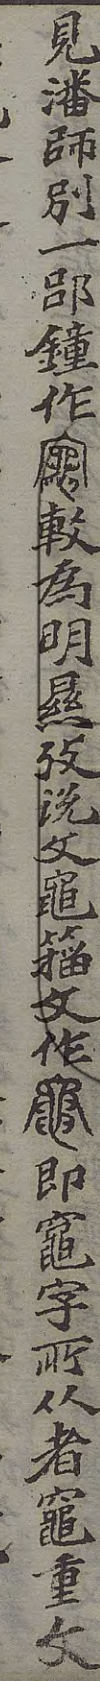 見潘師別一郘鐘作𥨫較為明㬎攷说文黿籀文作𪓿即竈字所从者竈重文